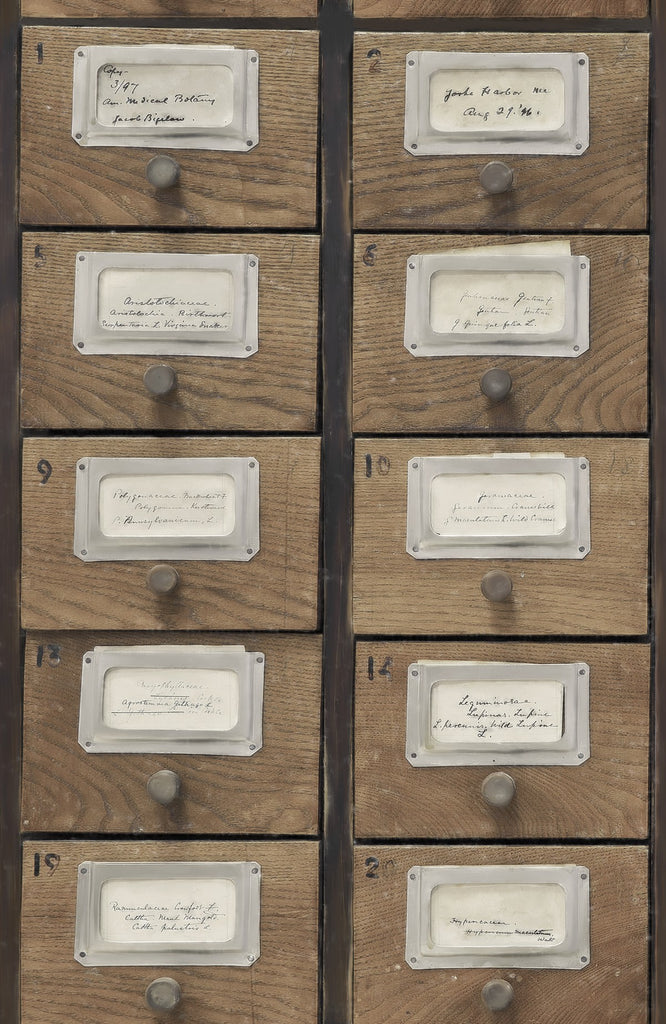 1
Copy-
3/97
Am. Medical Botany
Jacob Bigelow.
2
York Harbor Me.
Aug 29. '96.
5
Aristolochiaceae.
Aristolochia. Birthwort
Serpentaria L. Virginia Snake
6
L.
9
Polygonaceae. Buckwheat F.
Polygonum. Knotweed
P. Pennsylvanicum, L.
10
Geraniaceae.
Geranium. Cranesbill
G. maculatum L. Wild Cranes
13
Caryophyllaceae.
Cockle
Agrostemma Githago L.
14
Leguminosae.
Lupinus. Lupine
L. perennis. Wild Lupine
L.
19
Ranunculaceae Crowfoot F.
Caltha. Marsh Marigold
Caltha palustris L
20
Hypericaceae.
Hypericum maculatum.
Walt